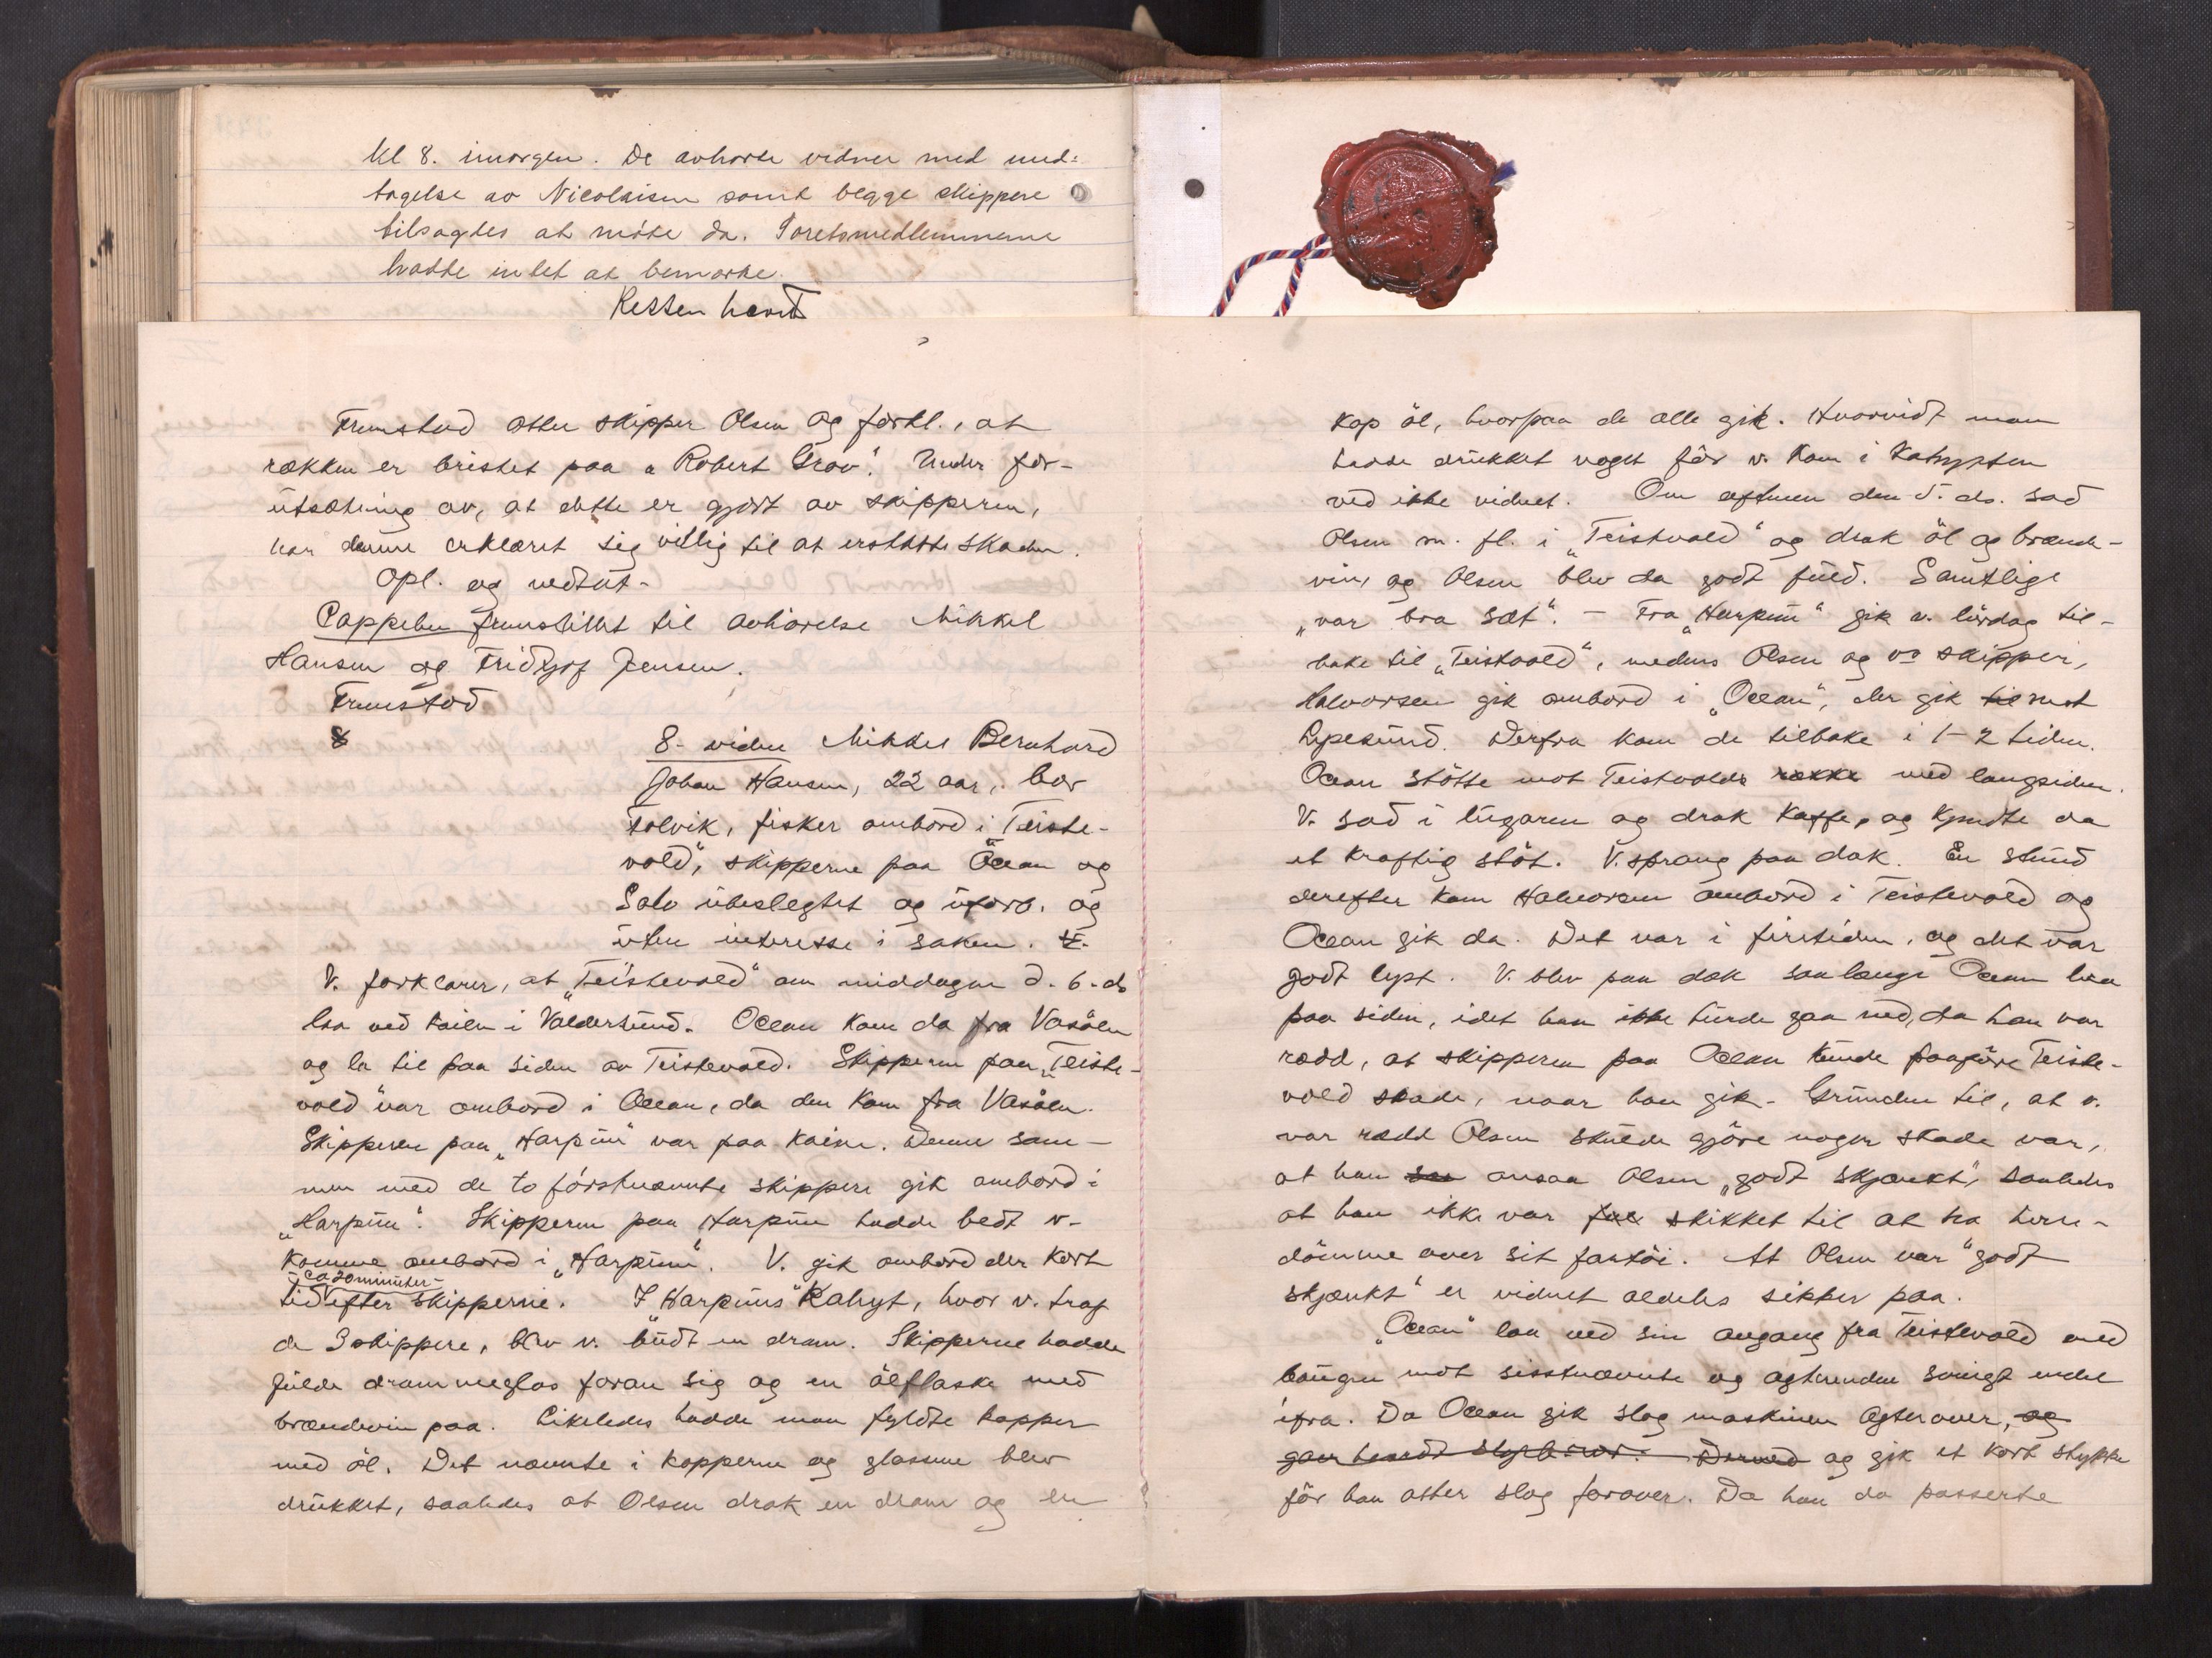 Kl 8. imorgen. De avhørte vidner med und=
tagelse av Nicolaisen samt begge skippere
tilsagdes at møte da. Soretsmedlemmerne
hadde intet at bemærke.
Retten hævet
Fremstod atter skipper Olsen og forkl., at
rækken er bristet paa "Robert Grov". Under for-
utsætning av, at dette er gjort av skipperen,
har denne erklæret sig villig til at erstatte skaden.
Opl. og vedtat-
Cappelen fremstillet til avhørelse Mikkel
Hansen og Fridtjof Jensen.
Fremstod
8
8- vidne Mikkel Bernhard
Johan Hansen, 22 aar, bor
Tolvik, fisker ombord i "Teiste-
vold", skipperne paa Ocean og
Salv ubeslegtet og uforb. og
uten interesse i saken.
V. forklarer, at "Teistevold" om middagen d. 6- ds
laa ved kaien i Valdersund. Ocean kom da fra Vasöen
og la til paa siden av Teistevold. Skipperen paa "Teiste-
vold" var ombord i Ocean, da den kom fra Vasöen.
Skipperen paa "Harpun" var paa kaien. Denne sam-
men med de to förstnævnte skippere gik ombord i
"Harpun". Skipperen paa Harpun hadde bedt v.
komme ombord i "Harpun". V. gik ombord der kort
- ca 20 minuter -
tid efter skipperne. I "Harpuns" Kahyt, hvor v. traf
de 3 skippere, blev v. budt en dram. Skipperne hadde
fulde drammeglas foran sig og en ölflaske med
brændevin paa. Likeledes hadde man fyldte kopper
med öl. Det nævnte i kopperne og glassene blev
drukket, saaledes at Olsen drak en dram og en
kop öl, hvorpaa de alle gik. Hvorvidt man
hadde drukket noget för v. kom i Kahytten
ved ikke vidnet. Om aftenen den 5. ds. sad
Olsen m. fl. i "Teistvold" og drak öl og brænde-
vin, og Olsen blev da godt fuld. Samtlige
"var bra sæt". - Fra "Harpun" gik v. lördag til-
bake til "Teistvold", medens Olsen og vs skipper,
Halvorsen gik ombord i "Ocean", der gik til mot
Lypesund. Derfra kom de tilbake i 1-2 tiden.
Ocean stötte mot Teistvolds række med langsiden.
V. sad i lugaren og drak kaffe, og kjendte da
et kraftig stöt. V. sprang paa dæk. En stund
derefter kom Halvorsen ombord i Teistevold og
Ocean gik da. Det var i firetiden, og det var
godt lyst. V. blev paa dæk saalænge Ocean laa
paa siden, idet han ikke turde gaa ned, da han var
rædd, at skipperen paa Ocean kunde paaföre Teiste-
vold skade, naar han gik. Grunden til, at v.
var rædd Olsen skulde gjöre nogen skade var,
at han saa ansaa Olsen "godt skjænkt", saaledes
at han ikke var skikket til at ha herre-
dömme over sit fartöi. At Olsen var "godt
skjænkt" er vidnet aldeles sikker paa.
"Ocean" laa ved sin avgang fra Teistevold med
baugen mot sisstnævnte og agterenden svingt endel
ifra. Da Ocean gik slog maskinen agterover, og
Dermed og gik et kort stykke
för han atter slog forover. Da han da passerte